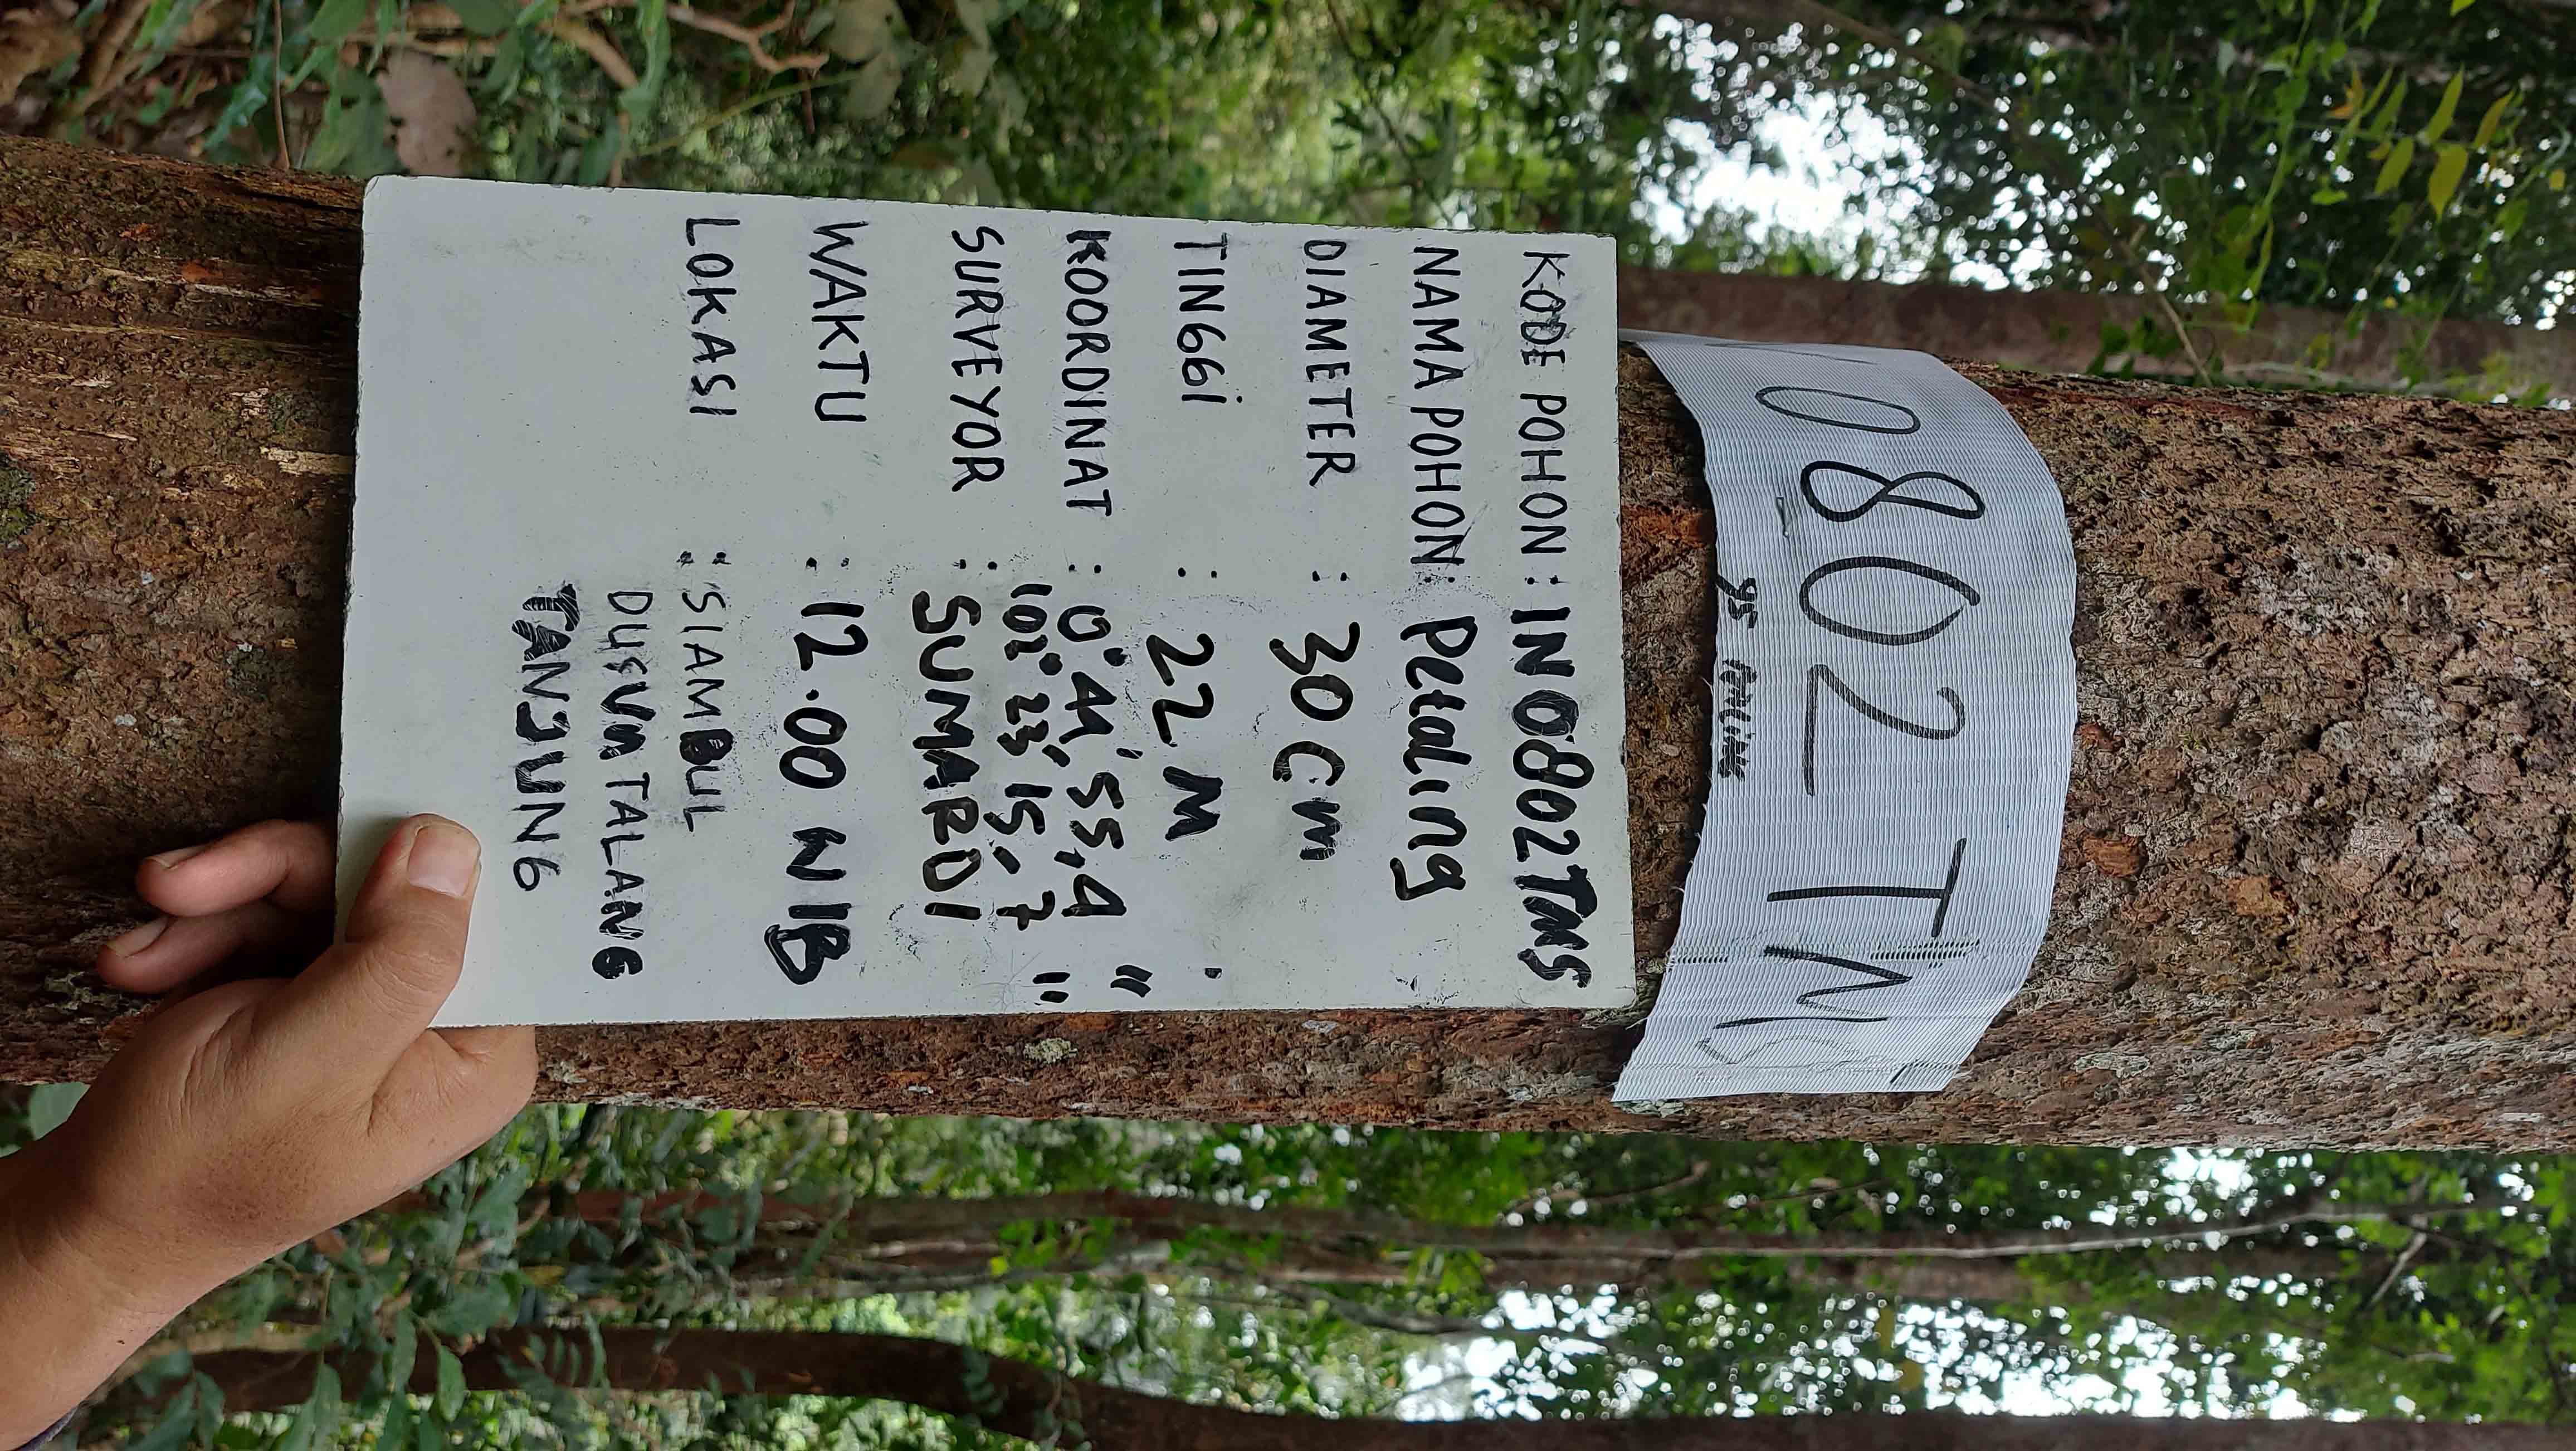 0802 TMS
95
KODE POHON : IN0802TMS
NAMA POHON : Petaling
DIAMETER : 30 cm
TINGGi : 22 M
KOORDINAT : 0° 44' 55,4 "
102° 23' 15,7 "
SURVEYOR : SUMARDI
WAKTU : 12.00 WIB
LOKASI : SIAMBUL
DUSUN TALANG
TANJUNG